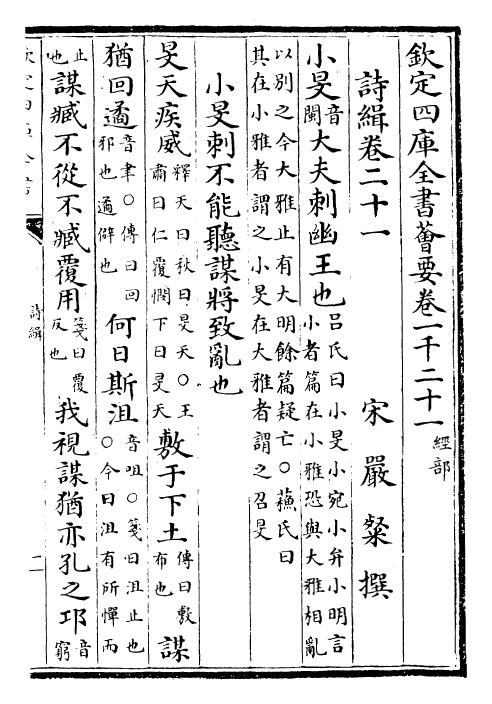 欽定四庫全書薈要卷一千二十一經部
詩緝卷二十一
宋嚴粲撰
小旻音閔大夫刺幽王也呂氏曰小旻小宛小弁小明言小者篇在小雅恐與大雅相亂
以別之今大雅止有大明餘篇疑亡○蘓氏曰其在小雅者謂之小旻在大雅者謂之召旻
小旻刺不能聽謀將致亂也
旻天疾威釋天曰秋曰旻天○王肅曰仁覆憫下曰旻天敷于下土傳曰敷布也謀
猶回遹音聿○傳曰回邪也遹僻也何日斯沮音咀○箋曰沮止也○今曰沮有所憚而
止也謀臧不從不臧覆用箋曰覆反也我視謀猶亦孔之邛音窮
欽定四庫全書
詩緝
二